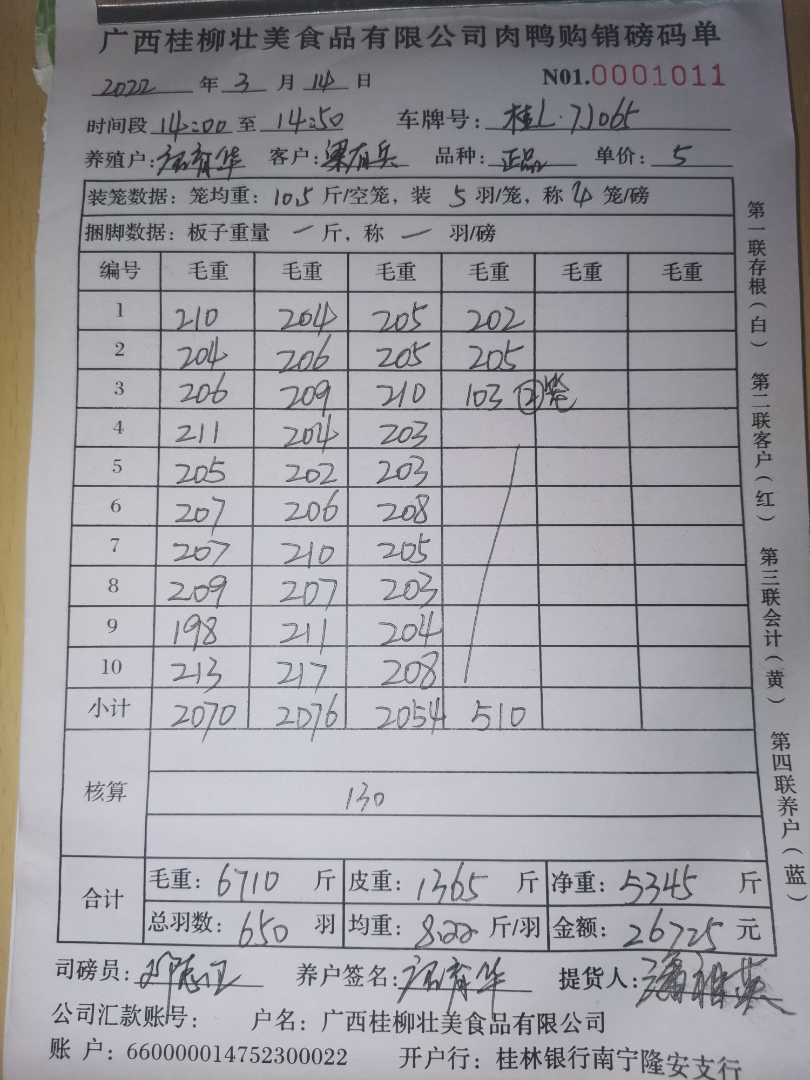 广西桂柳壮美食品有限公司肉鸭购销磅码单
2022 年 3 月 14 日 N01.0001011
时间段 14:00 至 14:50 车牌号: 桂L·7J065
养殖户: 育华 客户: 梁有兵 品种: 正品 单价: 5
装笼数据: 笼均重: 10.5 斤/空笼, 装 5 羽/笼, 称 4 笼/磅
捆脚数据: 板子重量 一 斤, 称 一 羽/磅
编号 毛重 毛重 毛重 毛重 毛重 毛重
1 210 204 205 202
2 204 206 205 205
3 206 209 210 103 ②笼
4 211 204 203
5 205 202 203
6 207 206 208
7 207 210 205
8 209 207 203
9 198 211 204
10 213 217 208
小计 2070 2076 2054 510
核算 130
合计 毛重: 6710 斤 皮重: 1365 斤 净重: 5345 斤
总羽数: 650 羽 均重: 8.22 斤/羽 金额: 26725 元
司磅员: 养户签名: 育华 提货人:
公司汇款账号: 户名: 广西桂柳壮美食品有限公司
账 户: 660000014752300022 开户行: 桂林银行南宁隆安支行
第一联存根(白) 第二联客户(红) 第三联会计(黄) 第四联养户(蓝)